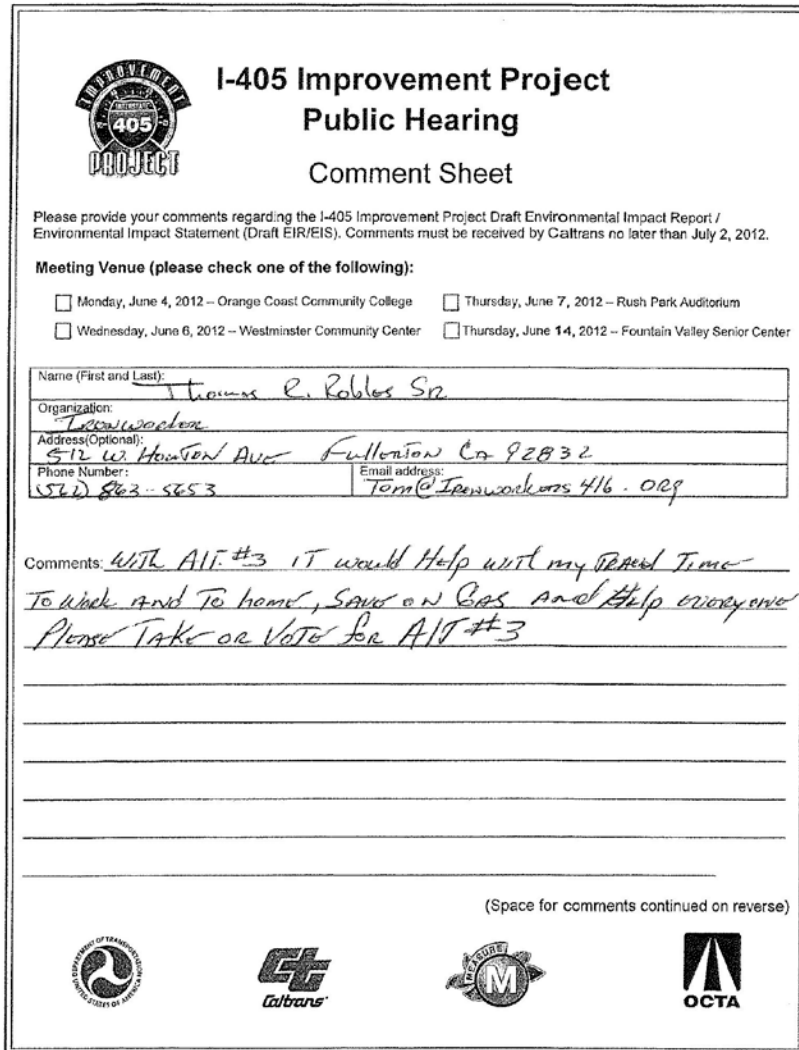 IMPROVEMENT
INTERSTATE
405
PROJECT
I-405 Improvement Project
Public Hearing
Comment Sheet
Please provide your comments regarding the I-405 Improvement Project Draft Environmental Impact Report /
Environmental Impact Statement (Draft EIR/EIS). Comments must be received by Caltrans no later than July 2, 2012.
Meeting Venue (please check one of the following):
Monday, June 4, 2012 – Orange Coast Community College
Thursday, June 7, 2012 – Rush Park Auditorium
Wednesday, June 6, 2012 – Westminster Community Center
Thursday, June 14, 2012 – Fountain Valley Senior Center
Name (First and Last): Thomas R. Robles Sr
Organization: Ironworker
Address(Optional): 512 W. Houston Ave Fullerton Ca 92832
Phone Number: (562) 863-5653
Email address: Tom@Ironworkers 416.org
Comments: With Alt. #3 it would Help with my Travel Time
To Work And To home, Save on Gas And Help everyone
Please Take or Vote for Alt #3
(Space for comments continued on reverse)
DEPARTMENT OF TRANSPORTATION
UNITED STATES OF AMERICA
Caltrans
MEASURE
M
OCTA